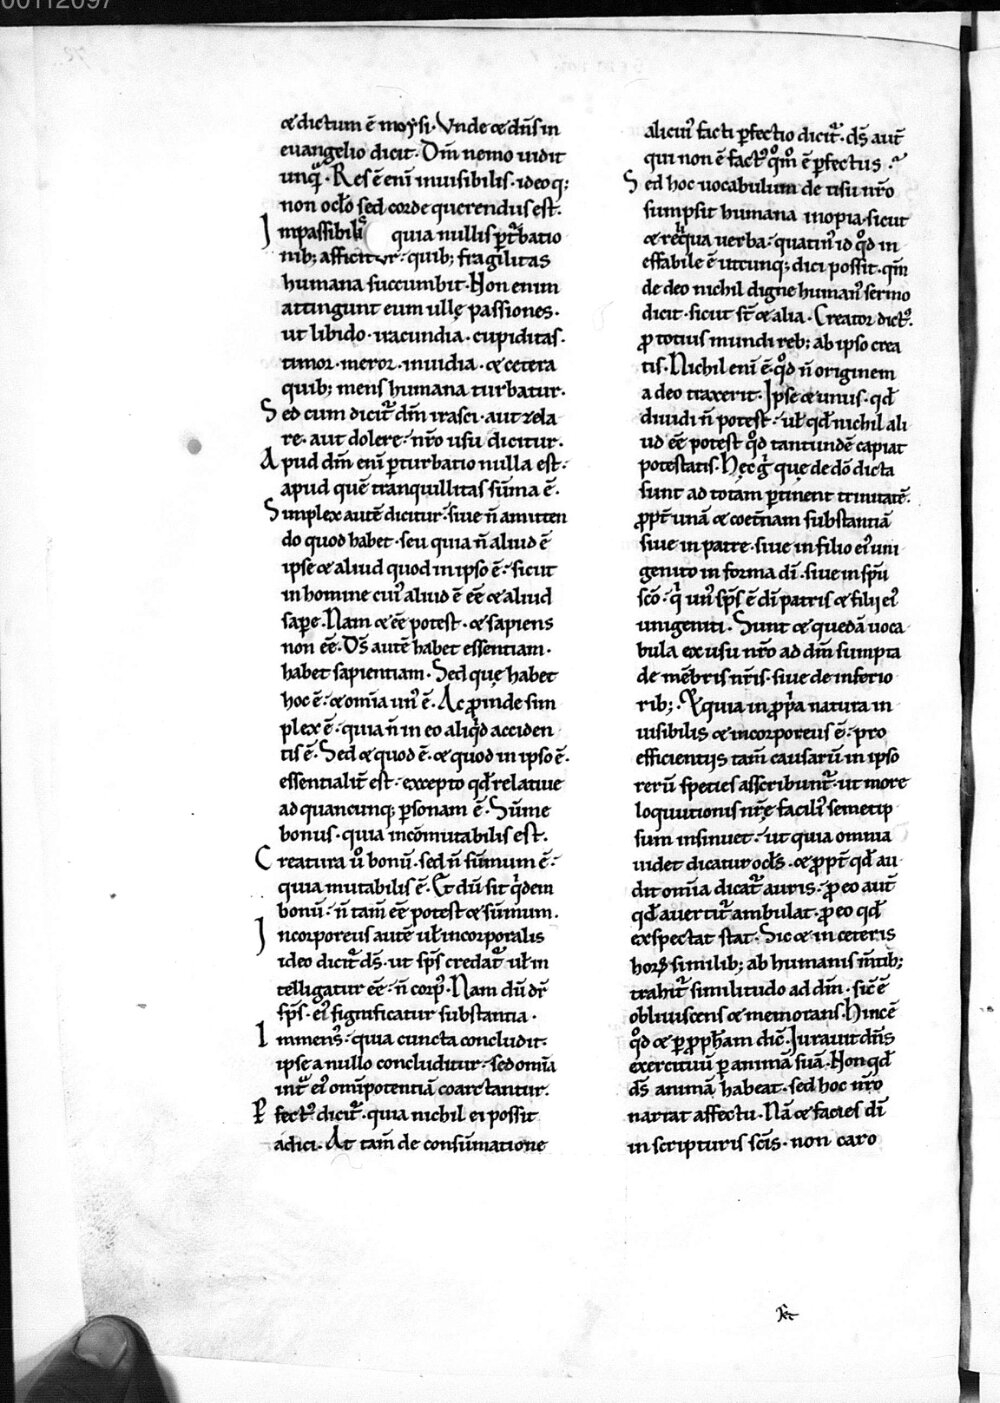 00112097
& dictum ē moysi. Vnde & dn̄s in
euangelio dicit. Dm̄ nemo uidit
unq̄. Res ē enī inuisibilis. ideoq;
non oclō sed corde querendus est.
Impassibilis quia nullis ꝑt̄batio
nib; afficitur. quib; fragilitas
humana succumbit. Non enim
attingunt eum ullę passiones.
ut libido. iracundia. cupiditas.
timor. meror. inuidia. & cetera
quib; mens humana turbatur.
Sed cum dicit̄ dm̄ irasci. aut zela
re. aut dolere. nr̄o usu dicitur.
Apud dm̄ enī ꝑturbatio nulla est.
apud quē tranquillitas sūma ē.
Simplex autē dicitur. siue n̄ amitten
do quod habet. seu quia n̄ aliud ē
ipse & aliud quod in ipso ē. sicut
in homine cui᾽ aliud ē eē & aliud
saꝑe. Nam & eē potest. & sapiens
non eē. Ds̄ autē habet essentiam.
habet sapientiam. Sed quę habet
hoc ē. & om̄ia un᾽ ē. Ac ꝓinde sim
plex ē. quia n̄ in eo aliqͥd acciden
tis ē. Sed & quod ē. & quod in ipso ē.
essentialit̄ est. excepto qd̄ relatiue
ad quancunq; ꝑsonam ē. Sūme
bonus. quia incōmutabilis est.
Creatura ū bonū. sed n̄ sūmum ē.
quia mutabilis ē. Et dū sit qͥdem
bonū. n̄ tam̄ eē potest & sūmum.
Incorporeus autē ul̄ incorporalis
ideo dicit̄ ds̄. ut sps̄ credat̄ ul̄ in
telligatur eē. n̄ corp᾽. Nam dū dr̄
sps̄. ei᾽ significatur substantia.
Immens᾽. quia cuncta concludit.
ipse a nullo concluditur. sed om̄ia
int̄ ei᾽ om̄ipotentiā coartantur.
Ꝑfect᾽ dicit̄. quia nichil ei possit
adici. At tam̄ de consūmatione
alicui᾽ facti ꝑfectio dicit̄. ds̄ aut̄
qui non ē fact᾽ qm̄ ē ꝑfectus.
Sed hoc uocabulum de usu nr̄o
sumpsit humana inopia. sicut
& reliqua uerba. quatin᾽ id qd̄ in
effabile ē utcunq; dici possit. qm̄
de deo nichil digne human᾽ sermo
dicit. sicut st̄ & alia. Creator dict᾽.
ꝓ totius mundi reb; ab ipso crea
tis. Nichil enī ē. qd̄ n̄ originem
a deo traxerit. Ipse & unus. qd̄
diuidi n̄ potest. ul̄ qd̄ nichil ali
ud eē potest qd̄ tantundē capiat
potestatis. Hęc gͥ quę de dō dicta
sunt ad totam ꝑtinent trinitatē.
ꝓpt̄ unā & coet̄nam substantiā
siue in patre. siue in filio ei᾽ uni
genito in forma dī. siue in spū
scō. qͥ un᾽ sps̄ ē dī patris & filij ei᾽
unigeniti. Sunt & quedā uoca
bula ex usu nr̄o ad dm̄ sumpta
de mēbris nr̄is. siue de inferio
rib;. Et quia in ꝓpͥa natura in
uisibilis & incorporeus ē. pro
efficientijs tam̄ causarū in ipso
rerū species asscribunt̄. ut more
loquutionis nr̄ę facili᾽ semetip
sum insinuet. ut quia omnia
uidet dicatur ocl̄s. & ꝓpt̄ qd̄ au
dit om̄ia dicat̄ auris. ꝓ eo aut̄
qd̄ auertit̄ ambulat. ꝓ eo qd̄
exspectat stat. Sic & in ceteris
horꝝ similib; ab humanis m̄tib;
trahit̄ similitudo ad dm̄. sic ē
obliuiscens & memorans. Hinc ē
qd̄ & ꝑ ꝓph̄am dic̄. Iurauit dn̄s
exercituū ꝑ animā suā. Non qd̄
ds̄ animā habeat. sed hoc nr̄o
narrat affectu. Nā & facies dī
in scripturis sc̄is. non caro